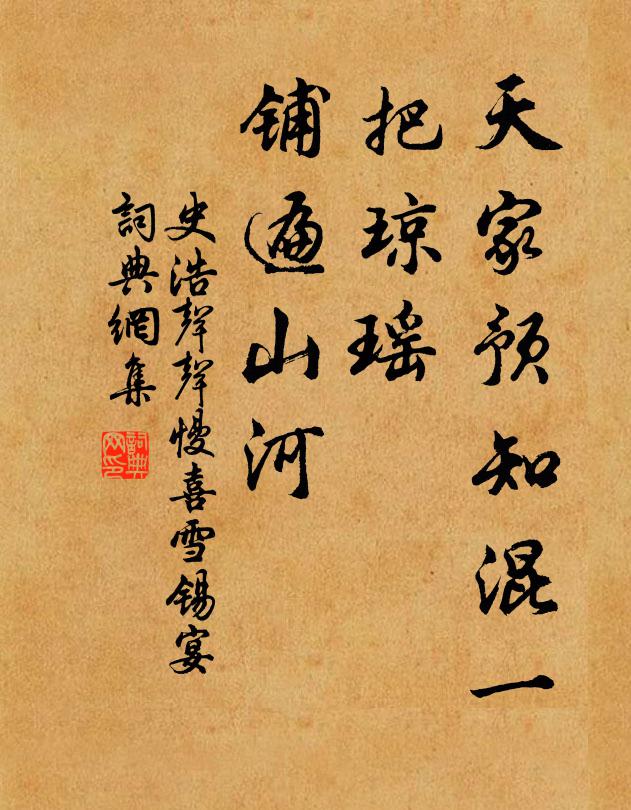 天家预知混一
把琼瑶
铺遍山河
史浩聲聲慢喜雪锡宴
詞典網集
詞典
网印